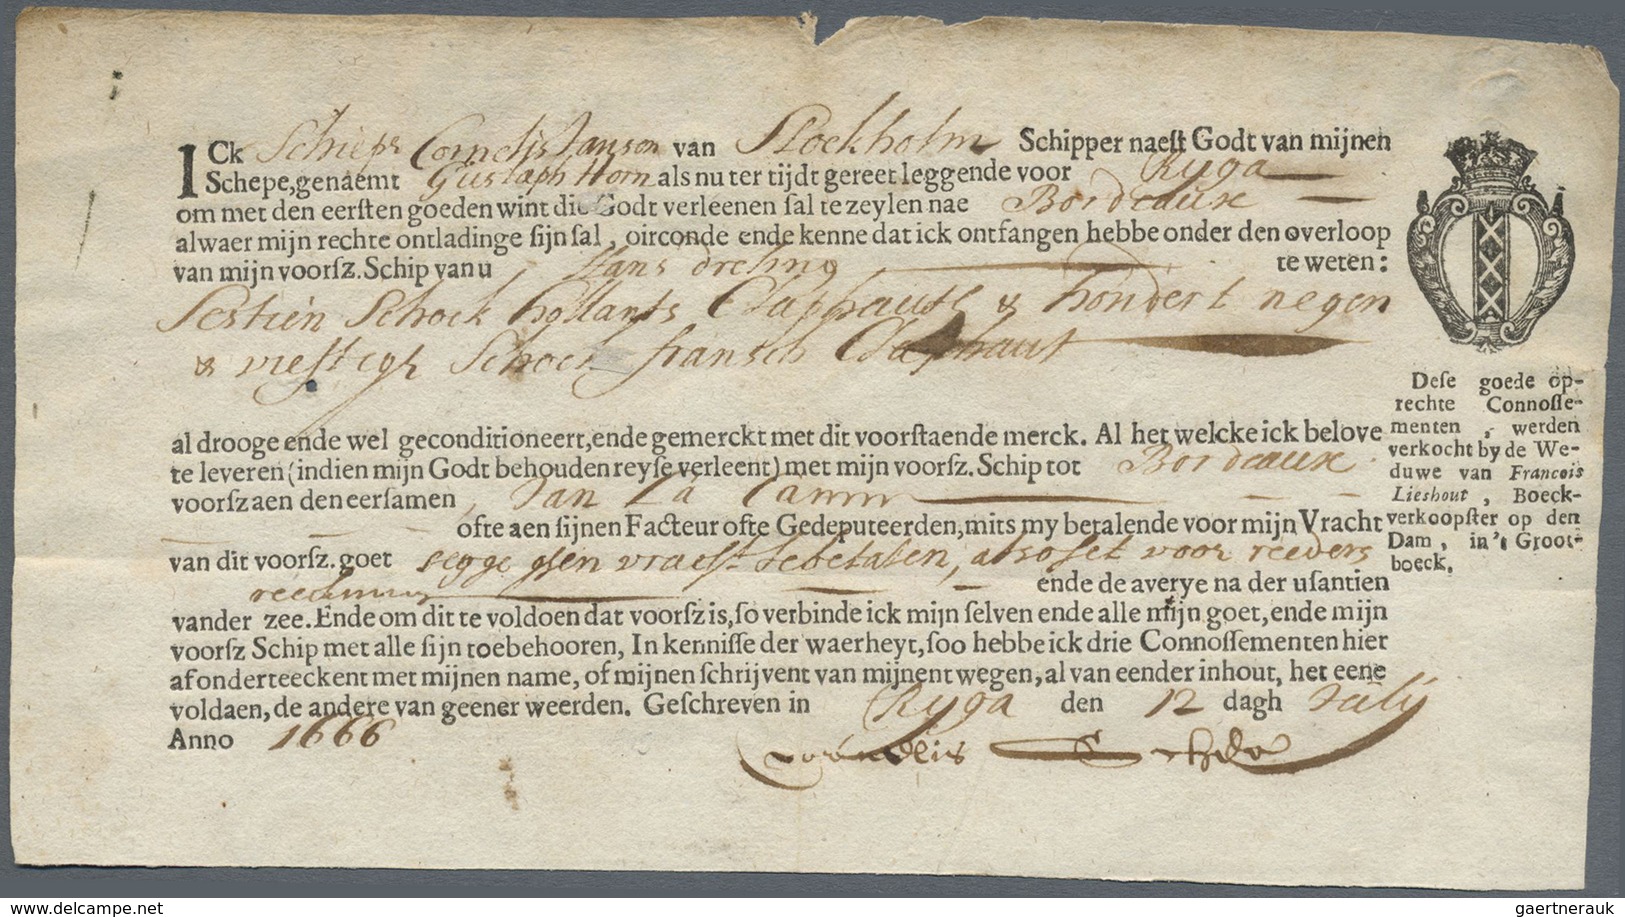 ICk Schiepr Cornelis Janson van Stockholm Schipper naest Godt van mijnen
Schepe, genaemt Gustaph Horn als nu ter tijdt gereet leggende voor Ryga
om met den eersten goeden wint die Godt verleenen sal te zeylen nae Bordeaux
alwaer mijn rechte ontladinge sijn sal, oirconde ende kenne dat ick ontfangen hebbe onder den overloop
van mijn voorsz. Schip van u Hans dreling te weten:
Sestien Schock hollants Claphaut & hondert negen
& viestigh Schock fransch Claphaut
al drooge ende wel geconditioneert, ende gemerckt met dit voorstaende merck. Al het welcke ick belove
te leveren (indien mijn Godt behouden reyse verleent) met mijn voorsz. Schip tot Bordeaux
voorsz aen den eersamen Jan La
ofte aen sijnen Facteur ofte Gedeputeerden, mits my betalende voor mijn Vracht
van dit voorsz. goet segge geen vracht te betalen, alsoo voor reeders
ende de averye na der usantien
vander zee. Ende om dit te voldoen dat voorsz is, so verbinde ick mijn selven ende alle mijn goet, ende mijn
voorsz Schip met alle sijn toebehooren, In kennisse der waerheyt, soo hebbe ick drie Connossementen hier
af onderteeckent met mijnen name, of mijnen schrijvent van mijnent wegen, al van eender inhout, het eene
voldaen, de andere van geener weerden. Geschreven in Ryga den 12 dagh Julij
Anno 1666
Cornelis
Dese goede op-
rechte Connosse-
menten, werden
verkocht by de We-
duwe van Francois
Lieshout, Boeck-
verkoopster op den
Dam, in't Groot-
boeck.
www.delcampe.net
gaertnerauk